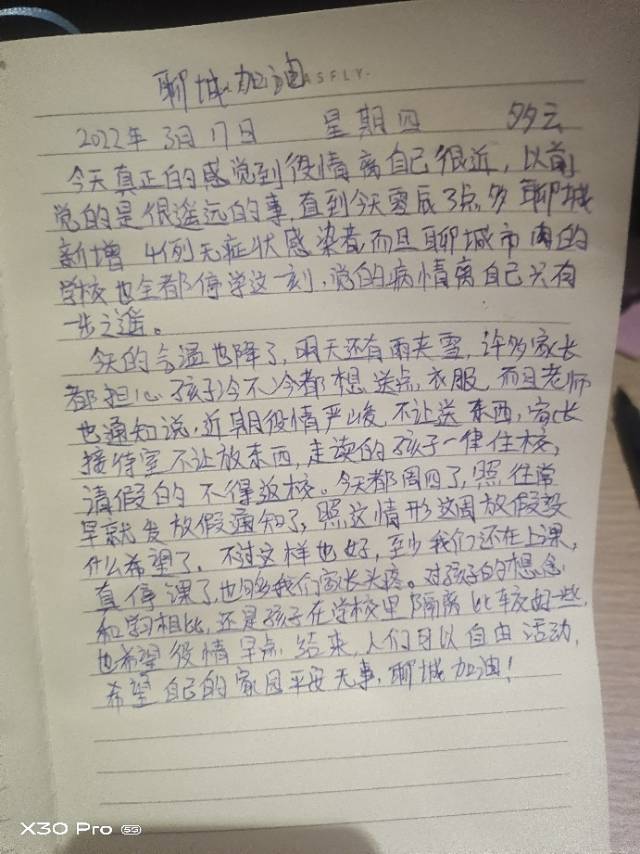 聊城加油
ASFLY.
2022年3月17日 星期四 多云
今天真正的感觉到役情离自己很近，以前
觉的是很遥远的事，直到今天零辰3点多聊城
新增4例无症状感染者而且聊城市内的
学校也全都停学这一刻，觉的病情离自己只有
一步之遥。
今天的气温也降了，明天还有雨夹雪，许多家长
都担心孩子冷不冷都想送点衣服，而且老师
也通知说，近期役情严峻，不让送东西，家长
接待室不让放东西，走读的孩子一律住校，
请假的不得返校。今天都周四了，照往常
早就发放假通知了，照这情形这周放假没
什么希望了。不过这样也好，至少我们还在上课，
真停课了也够我们家长头疼。对孩子的想念
和学习相比，还是孩子在学校里隔离比较好一些，
也希望役情早点结束，人们可以自由活动，
希望自己的家园平安无事，聊城加油！
X30 Pro 5G